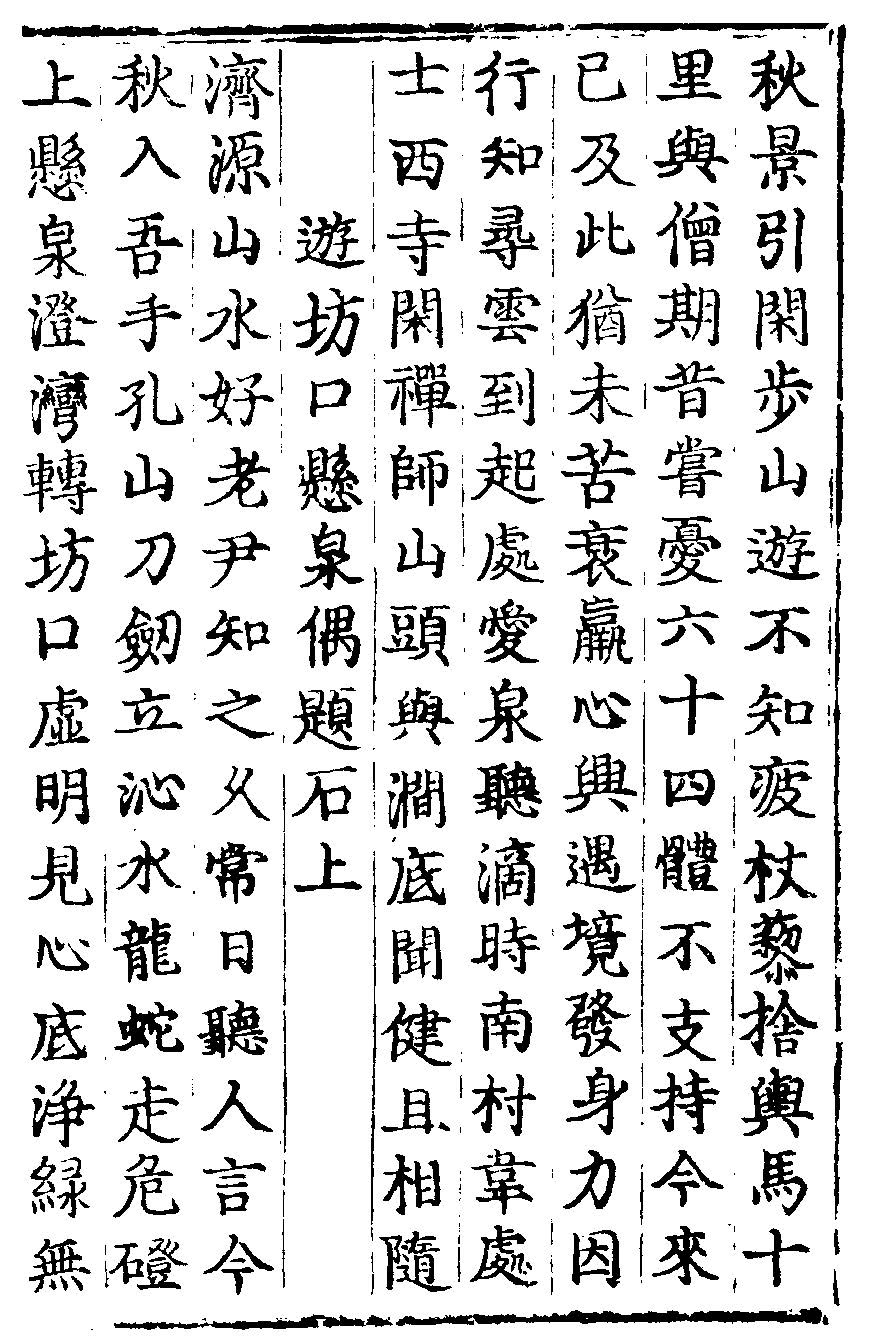 秋景引閑步山遊不知疲杖藜捨輿馬十
里與僧期昔嘗憂六十四體不支持今來
已及此猶未苦衰羸心興遇境發身力因
行知尋雲到起處愛泉聽滴時南村韋處
士西寺閑禪師山頭與澗底聞健且相隨
遊坊口懸泉偶題石上
濟源山水好老尹知之久常日聽人言今
秋入吾手孔山刀劒立沁水龍蛇走危磴
上懸泉澄灣轉坊口虛明見心底淨緑無